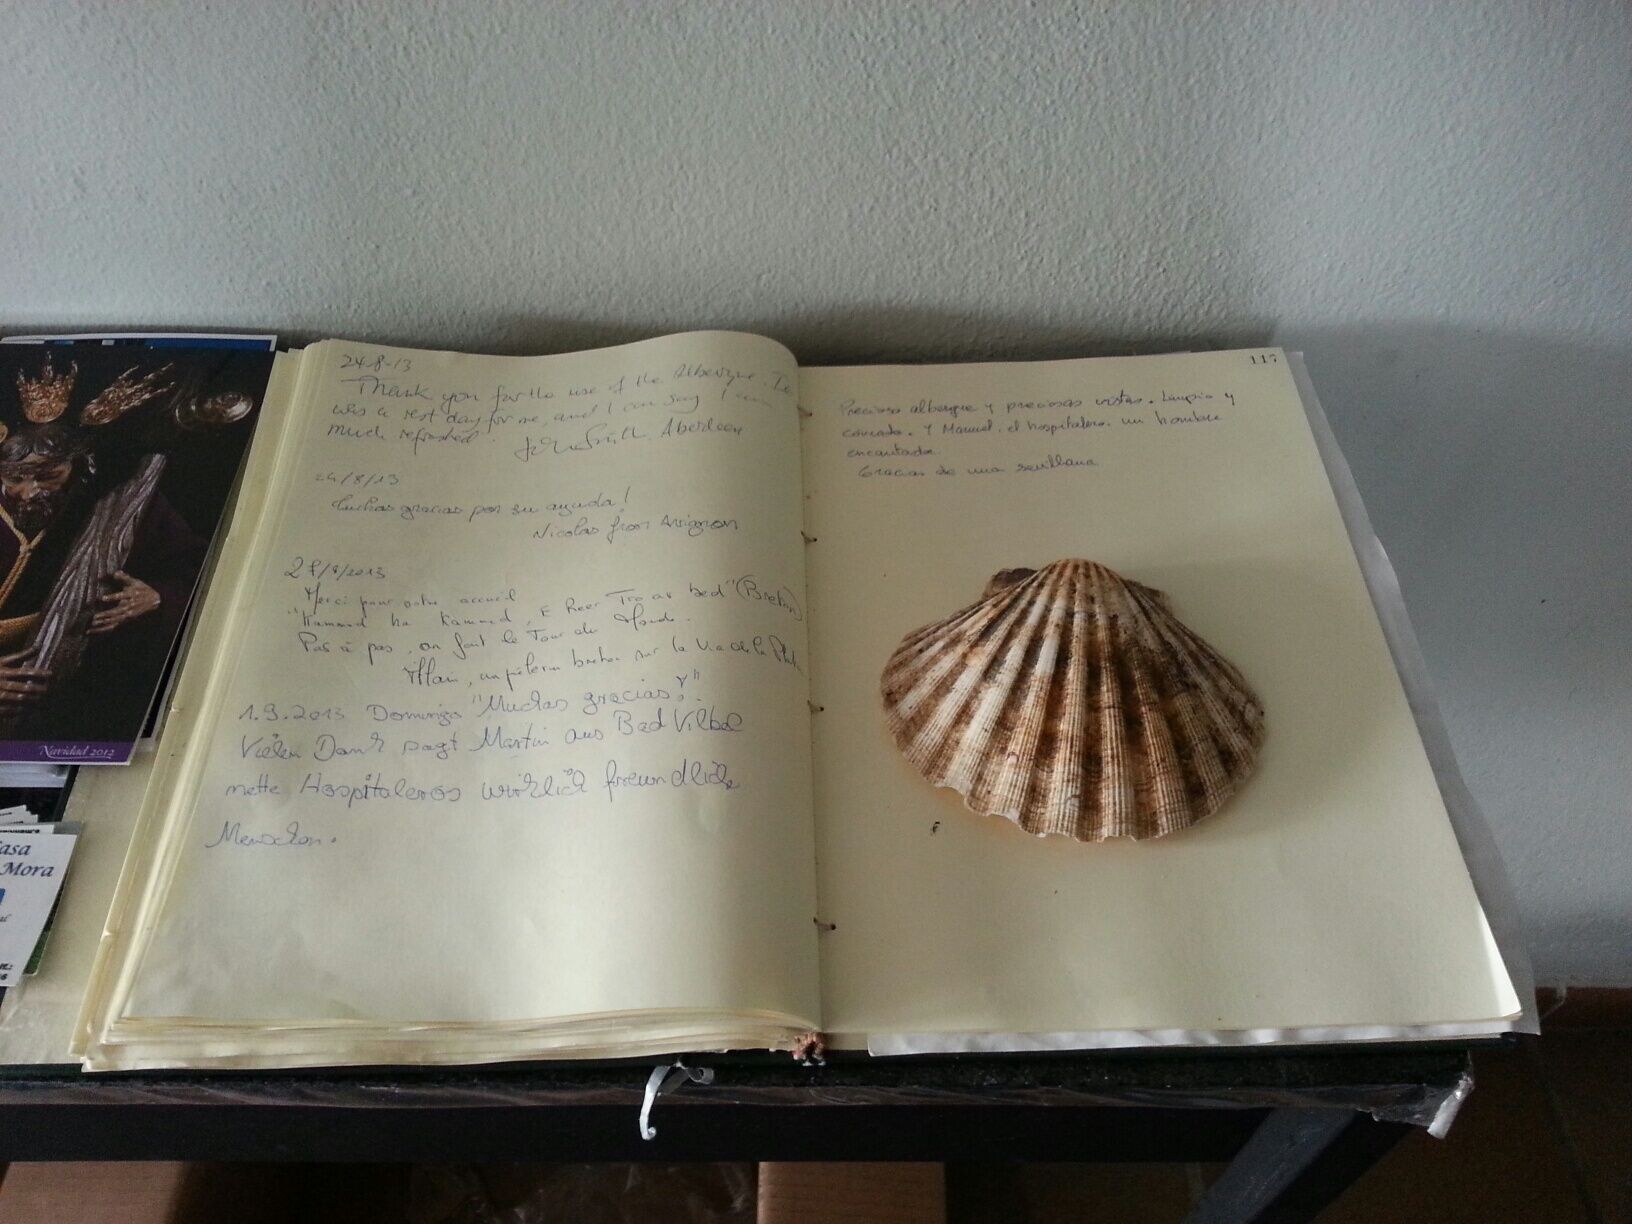 24-8-13
Thank you for the use of the Albergue. It
was a rest day for me, and I can say I am
much refreshed. John Smith, Aberdeen
24/8/13
Muchas gracias por su ayuda!
Nicolas from Avignon
/2013
Merci pour votre accueil
"Kammed ha Kammed, e heer Tro ar bed" (Breton)
Pas à pas, on fait le Tour du Monde.
Alain, un pèlerin breton sur la Via de la Plata
1.9.2013 Domingo "Muchas gracias"
Vielen Dank sagt Martin aus Bad Vilbel
nette Hospitaleros wirklich freundliche
Menschen.
117
Precioso albergue y preciosas vistas. Limpio y
cómodo. Y Manuel, el hospitalero, un hombre
encantador.
Gracias de una sevillana
Navidad 2012
asa
Mora